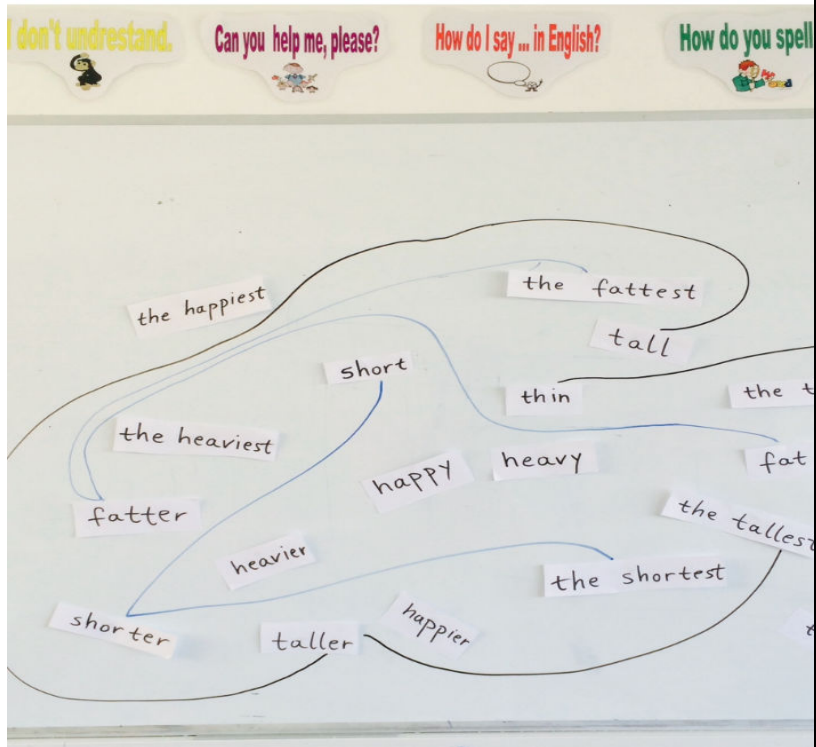 I don't undrestand.
Can you help me, please?
How do I say ... in English?
How do you spell
the happiest
the fattest
tall
short
thin
the t
the heaviest
happy
heavy
fat
fatter
the tallest
heavier
the shortest
shorter
taller
happier
t